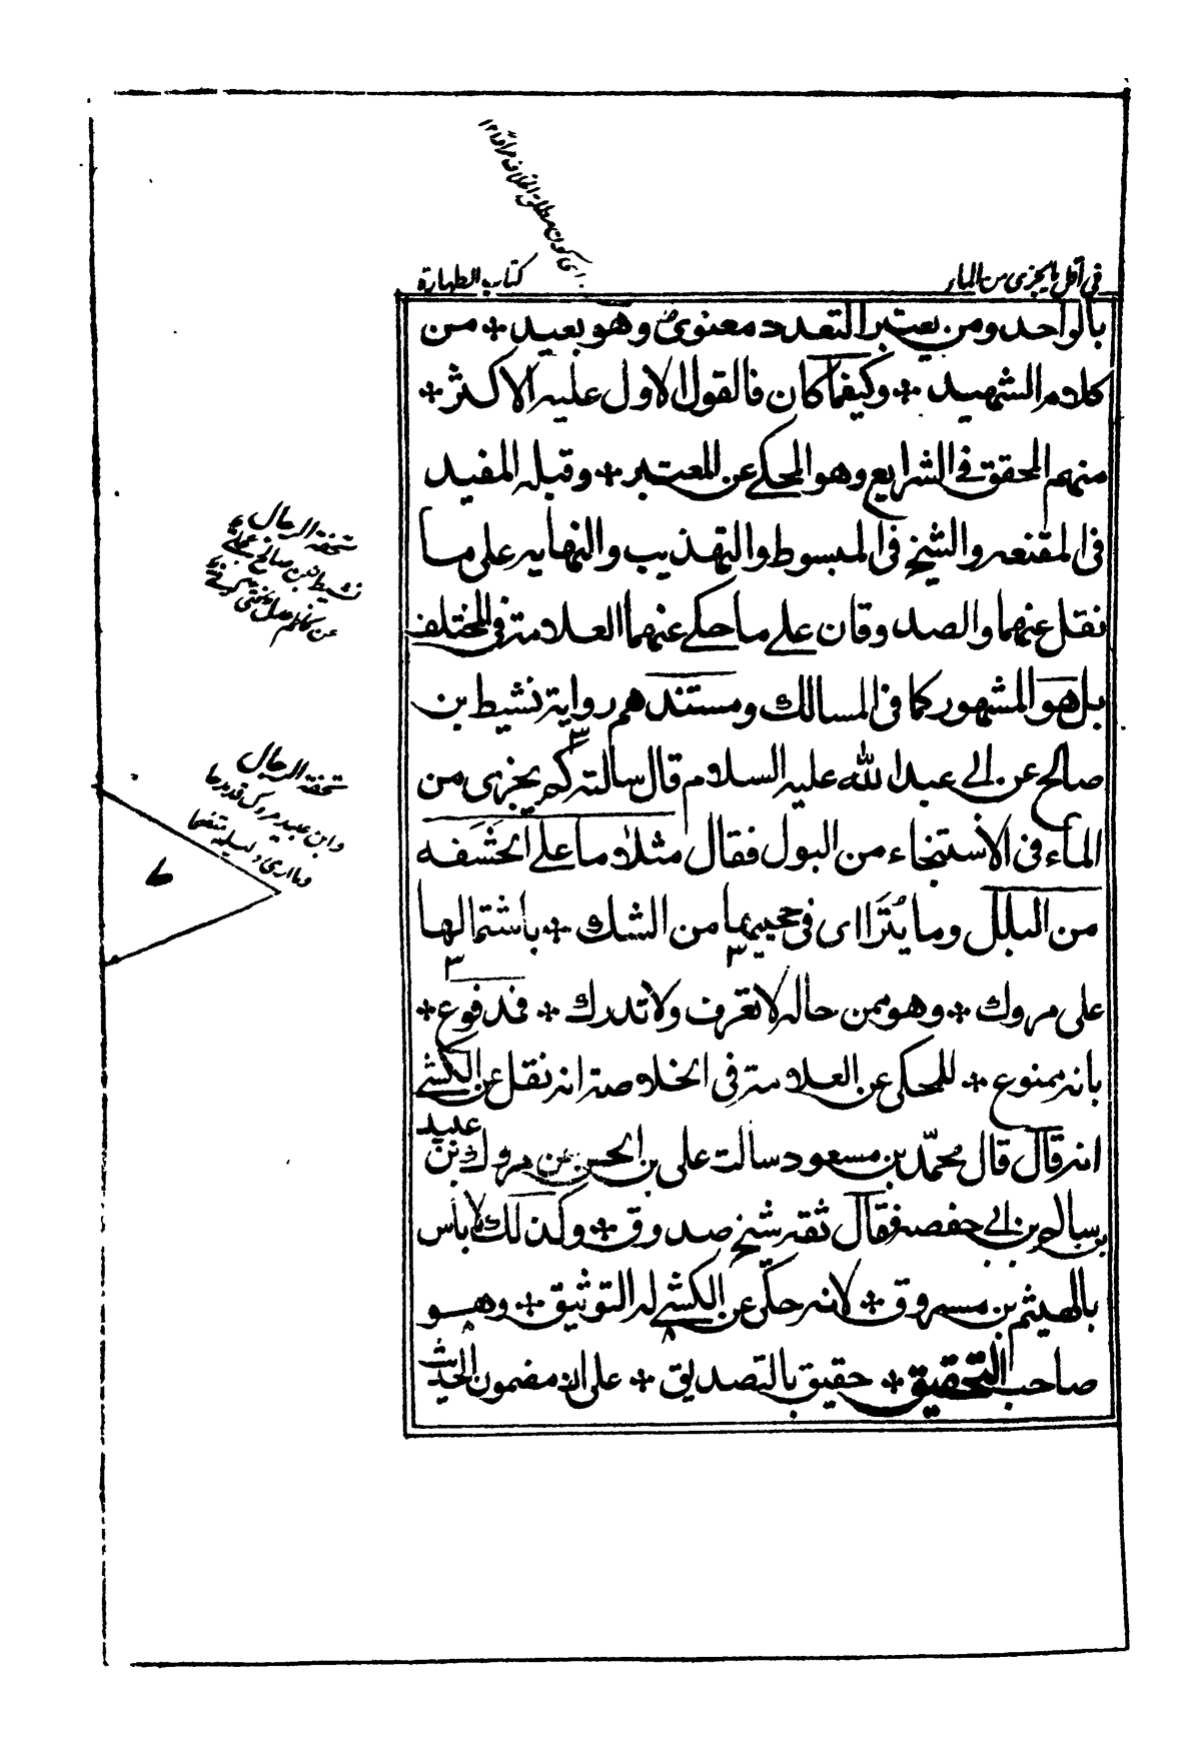 في أقل ما يجزي من الماء
كتاب الطهارة
بالواحد ومن يعتبر التعدد معنوي وهو بعيد ÷ من
كلام الشهيد ÷ وكيفما كان فالقول الاول عليه الاكثر ÷
منهم المحقق في الشرايع وهو المحكي عن المعتبر ÷ وقبله المفيد
في المقنعه والشيخ في المبسوط والتهذيب والنهايه على ما
نقل عنهما والصدوقان علے ما حكے عنهما العلامة في المختلف
بل هو المشهور كما في المسالك ومستندهم رواية نشيط بن
صالح عن ابي عبد الله عليه السلام قال سالته كم يجزى من
الماء في الاستنجاء من البول فقال مثلا ما علے الحشفه
من البلل وما يُتَراا ى في حجيتها من الشك ÷ باشتمالها
على مروك ÷ وهو ممن حاله لا تعرف ولا تدرك ÷ فمدفوع ÷
بانه ممنوع ÷ للمحكى عن العلامة في الخلاصة انه نقل عن الكشے
انه قال قال محمّد بن مسعود سالت على بن الحسن عن مروك بن عبيد
بن سالم بن ابي حفصه فقال ثقة شيخ صدوق ÷ وكذلك لا باس
بالهيثم بن مسروق ÷ لانه حكى عن الكشے له التوثيق ÷ وهو
صاحب التحقيق ÷ حقيق بالتصديق ÷ على ان مضمون الحديث
تحفة الرجال
نشيط بن صالح
تحفة الرجال
وابن عبيد مروك